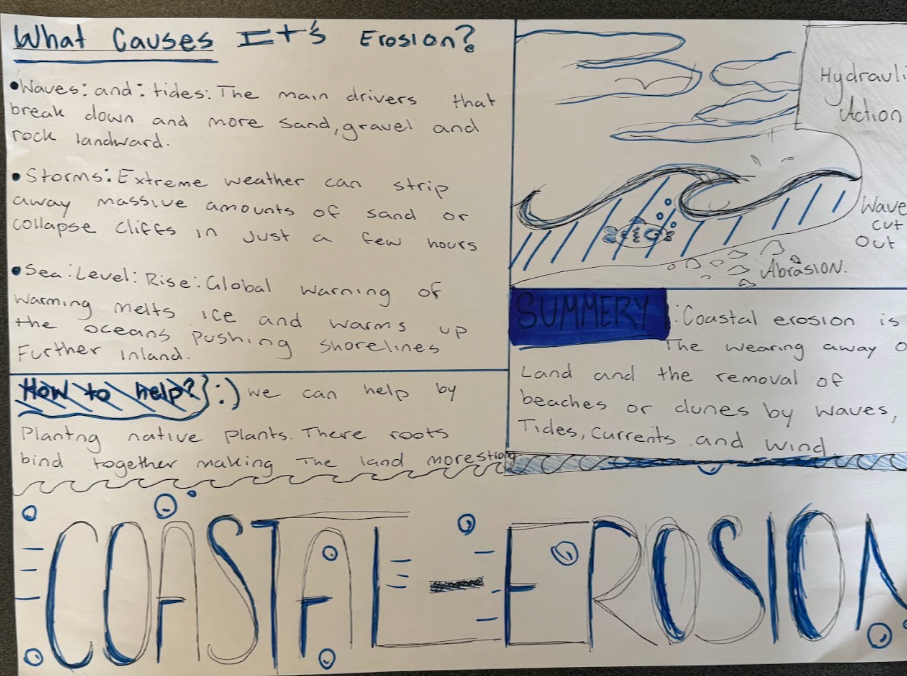 What Causes It's Erosion?
•Waves: and: tides: The main drivers that
break down and more sand, gravel and
rock landward.
•Storms: Extreme weather can strip
away massive amounts of sand or
collapse cliffs in just a few hours
•Sea: Level: Rise: Global warning of
warming melts ice and warms up
the oceans pushing shorelines
Further inland.
How to help? :) we can help by
Plantng native plants. There roots
bind together making The land more strong
Hydrauli
Action
Wave
cut
Out
Abrasion.
SUMMERY: Coastal erosion is
The wearing away o
Land and the removal of
beaches or dunes by waves,
Tides, currents and wind.
COASTAL-EROSION